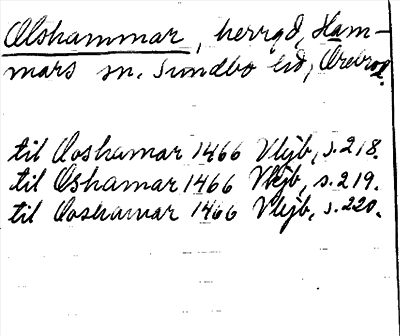 Olshammar, herrgd, Ham-
mars sn. Sundbo hd, Örebro l.
til Ooshamar 1466 Vljb, s. 218.
til Oshamar 1466 Vljb, s. 219.
til Ooshamar 1466 Vljb, s. 220.